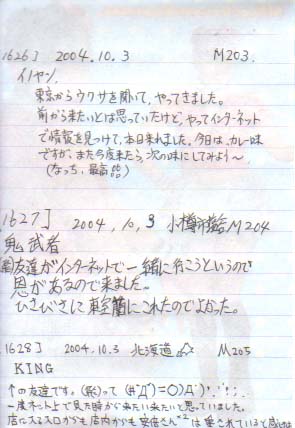 1626] 2004.10.3 M203.
イノヤン.
東京からウワサを聞いて、やってきました。
前から来たいとは思っていたけど、やっとインターネット
で情報を見つけて、本日来れました。今日は、カレー味
ですが、また今度来たら、次の味にしてみよう〜
(なっち、最高!!)
1627] 2004, 10, 3 小樽 M204
鬼武者
友達がインターネットで一緒に行こうというので
恩があるので来ました〜
ひさびさに室蘭にこれたのでよかった。
1628] 2004.10.3 北海道 M205
KING
↑の友達です。って (#ﾟДﾟ)=○)Д)'
一度ネット上で見た時から来たい来たいと思っていました。
店に入る入口からも店内からも安倍さん は愛されていると感じ